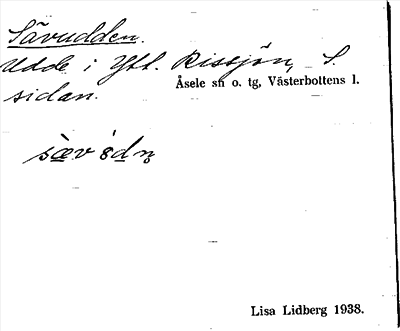 Sävudden.
Udde i Ytt. Rissjön, S.
sidan.
Åsele sn o. tg, Västerbottens l.
Lisa Lidberg 1938.